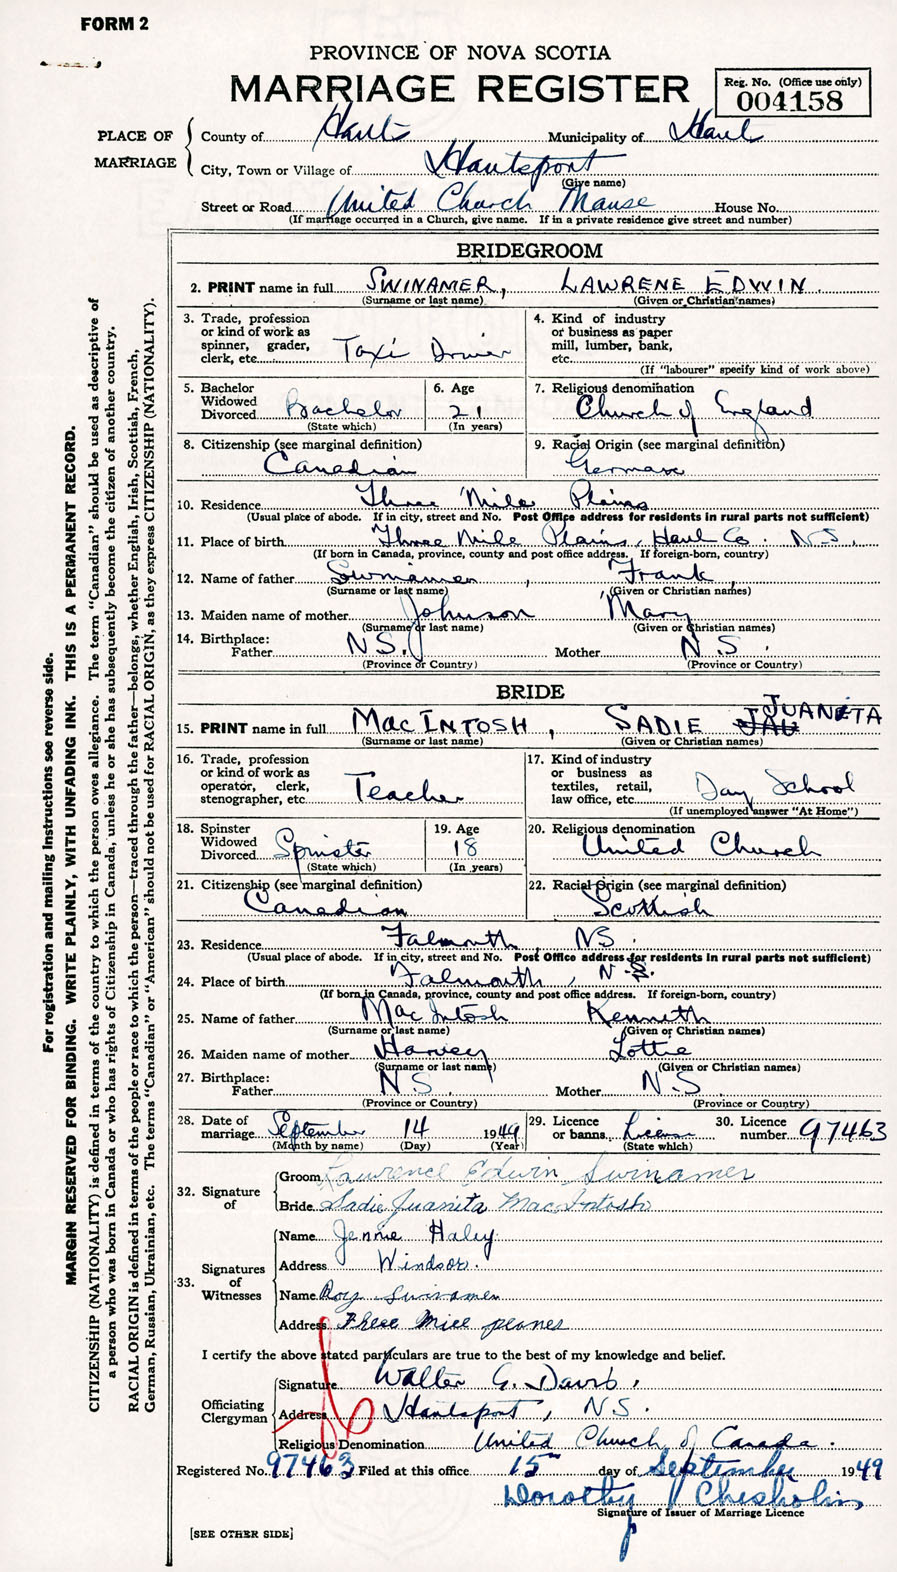 FORM 2
PROVINCE OF NOVA SCOTIA
MARRIAGE REGISTER
Reg. No. (Office use only)
004158
PLACE OF MARRIAGE
County of Hants Municipality of Hants
City, Town or Village of Hantsport
(Give name)
Street or Road United Church Manse House No.
(If marriage occurred in a Church, give name. If in a private residence give street and number)
BRIDEGROOM
2. PRINT name in full SWINAMER, LAWRENE EDWIN
(Surname or last name) (Given or Christian names)
3. Trade, profession or kind of work as spinner, grader, clerk, etc. Taxi Driver
4. Kind of industry or business as paper mill, lumber, bank, etc.
(If "labourer" specify kind of work above)
5. Bachelor Widowed Divorced Bachelor
(State which)
6. Age 21
(In years)
7. Religious denomination
Church of England
8. Citizenship (see marginal definition)
Canadian
9. Racial Origin (see marginal definition)
German
10. Residence Three Mile Plains
(Usual place of abode. If in city, street and No. Post Office address for residents in rural parts not sufficient)
11. Place of birth Three Mile Plains, Hants Co. N.S.
(If born in Canada, province, county and post office address. If foreign-born, country)
12. Name of father Swinamer, Frank
(Surname or last name) (Given or Christian names)
13. Maiden name of mother Johnson Mary
(Surname or last name) (Given or Christian names)
14. Birthplace:
Father N.S. Mother N.S.
(Province or Country) (Province or Country)
BRIDE
15. PRINT name in full MacINTOSH, SADIE JUANITA
(Surname or last name) (Given or Christian names)
16. Trade, profession or kind of work as operator, clerk, stenographer, etc. Teacher
17. Kind of industry or business as textiles, retail, law office, etc. Day School
(If unemployed answer "At Home")
18. Spinster Widowed Divorced Spinster
(State which)
19. Age 18
(In years)
20. Religious denomination
United Church
21. Citizenship (see marginal definition)
Canadian
22. Racial Origin (see marginal definition)
Scottish
23. Residence Falmouth, NS.
(Usual place of abode. If in city, street and No. Post Office address for residents in rural parts not sufficient)
24. Place of birth Falmouth, N.S.
(If born in Canada, province, county and post office address. If foreign-born, country)
25. Name of father MacIntosh Kenneth
(Surname or last name) (Given or Christian names)
26. Maiden name of mother Harvey Lottie
(Surname or last name) (Given or Christian names)
27. Birthplace:
Father N.S. Mother N.S
(Province or Country) (Province or Country)
28. Date of marriage September 14 1949
(Month by name) (Day) (Year)
29. Licence or banns License
(State which)
30. Licence number 97463
32. Signature of
Groom Lawrence Edwin Swinamer
Bride Sadie Juanita MacIntosh
33. Signatures of Witnesses
Name Jennie Haley
Address Windsor.
Name Roy Swinamer
Address Three Mile planes
I certify the above stated particulars are true to the best of my knowledge and belief.
Officiating Clergyman
Signature Walter G. Davis.
Address Hantsport, N.S.
Religious Denomination United Church of Canada.
Registered No. 97463 Filed at this office 15 day of September 1949
Dorothy J Chisholm
Signature of Issuer of Marriage Licence
[SEE OTHER SIDE]
For registration and mailing instructions see reverse side.
MARGIN RESERVED FOR BINDING. WRITE PLAINLY, WITH UNFADING INK. THIS IS A PERMANENT RECORD.
CITIZENSHIP (NATIONALITY) is defined in terms of the country to which the person owes allegiance. The term "Canadian" should be used as descriptive of
a person who was born in Canada or who has rights of Citizenship in Canada, unless he or she has subsequently become the citizen of another country.
RACIAL ORIGIN is defined in terms of the people or race to which the person—traced through the father—belongs, whether English, Irish, Scottish, French,
German, Russian, Ukrainian, etc. The terms "Canadian" or "American" should not be used for RACIAL ORIGIN, as they express CITIZENSHIP (NATIONALITY).